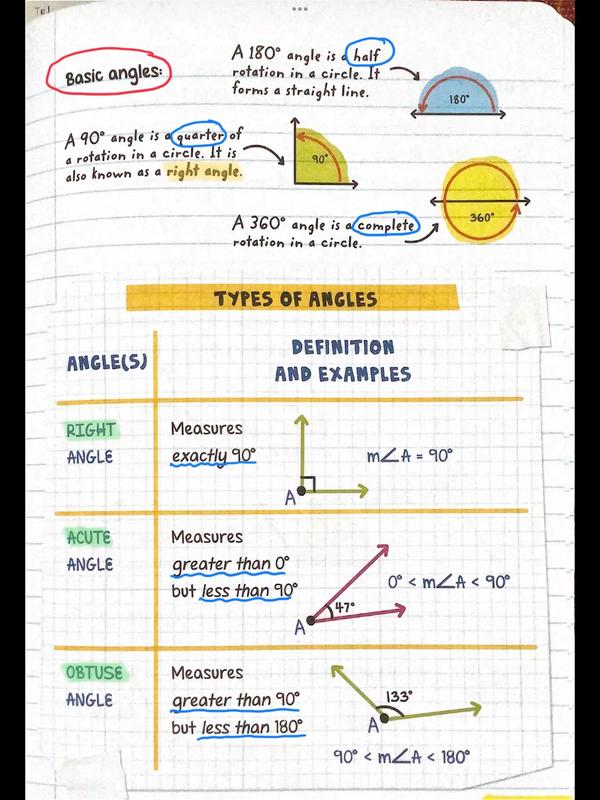 Basic angles:
A 180° angle is a half
rotation in a circle. It
forms a straight line.
180°
A 90° angle is a quarter of
a rotation in a circle. It is
also known as a right angle.
90°
A 360° angle is a complete
rotation in a circle.
360°
TYPES OF ANGLES
ANGLE(S)
DEFINITION
AND EXAMPLES
RIGHT
ANGLE
Measures
exactly 90°
A
m∠A = 90°
ACUTE
ANGLE
Measures
greater than 0°
but less than 90°
47°
A
0° < m∠A < 90°
OBTUSE
ANGLE
Measures
greater than 90°
but less than 180°
133°
A
90° < m∠A < 180°